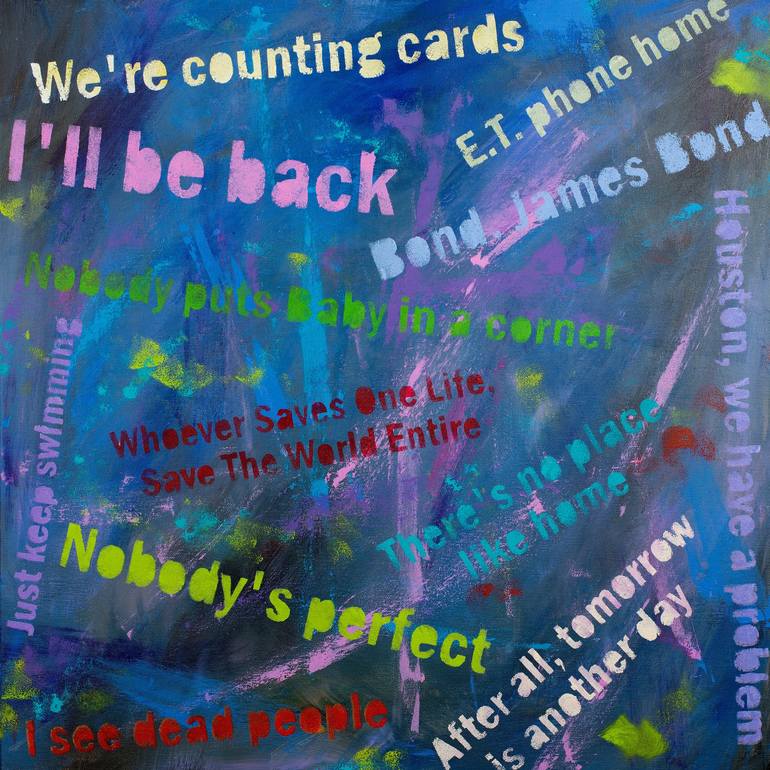 We're counting cards
E.T. phone home
I'll be back
Bond. James Bond.
Houston, we have a problem
Nobody puts Baby in a corner
Just keep swimming
Whoever Saves One Life,
Save The World Entire
There's no place
like home
Nobody's perfect
After all, tomorrow
is another day
I see dead people